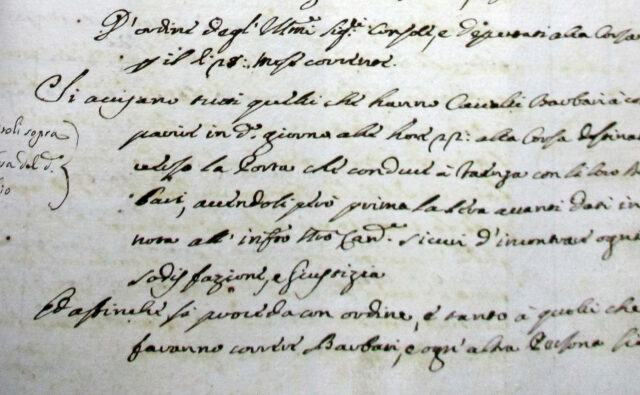 D'ordine degl' Ill.mi Sig.ri Consoli, e Deputati alla Corsa
p il dì 28: mese corrente.
Si avisano tutti quelli che hanno Cavalli Barbari à com
parire in d.o giorno alle hore 21: alla Corsa destina
verso la Porta che conduce à Faenza con li loro B
bari, avendoli però prima la sera avanti dati in
nota all' infro nro Canc. sicuri d'incontrare ogni
sodisfazione, e Giustizia
Ed affinche si proceda con ordine, e tanto à quelli che
faranno correre Barbari, e ogn'altra Persona sia
oli sopra
del d.o
lio